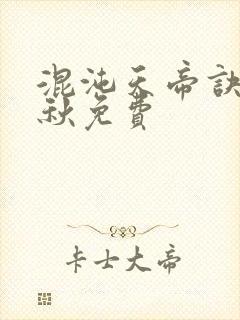 混沌天帝訣
秋免費
卡士大帝